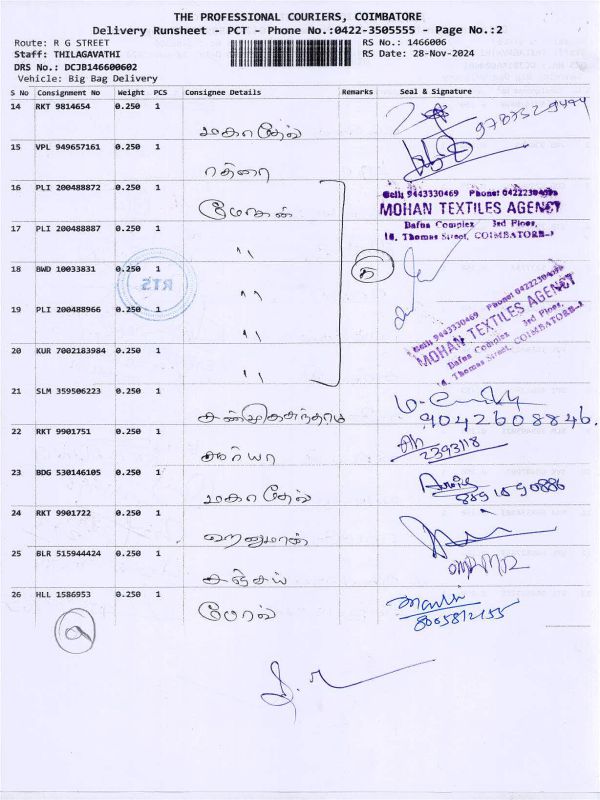 THE PROFESSIONAL COURIERS, COIMBATORE
Delivery Runsheet - PCT - Phone No.:0422-3505555 - Page No.:2
Route: R G STREET
RS No.: 1466006
Staff: THILAGAVATHI
RS Date: 28-Nov-2024
DRS No.: DCJB146600602
Vehicle: Big Bag Delivery
S No Consignment No Weight PCS Consignee Details Remarks Seal & Signature
14 RKT 9814654 0.250 1
மகாதேவ்
15 VPL 949657161 0.250 1
16 PLI 200488872 0.250 1
மோகன்
Cell: 9443330469 Phone:
MOHAN TEXTILES AGENCY
Bafna Complex 3rd Floor,
16, Thomas Street, COIMBATORE-1
17 PLI 200488887 0.250 1
"
18 BWD 10033831 0.250 1
RTS
"
19 PLI 200488966 0.250 1
"
Cell: 9443330469 Phone:
MOHAN TEXTILES AGENCY
Bafna Complex 3rd Floor,
16, Thomas Street, COIMBATORE-1
20 KUR 7002183984 0.250 1
"
21 SLM 359506223 0.250 1
9042608846.
22 RKT 9901751 0.250 1
சூர்யா
2393118
23 BDG 530146105 0.250 1
மகாதேவ்
24 RKT 9901722 0.250 1
ஹனுமான்
25 BLR 515944424 0.250 1
சஞ்சய்
26 HLL 1586953 0.250 1
8005812155